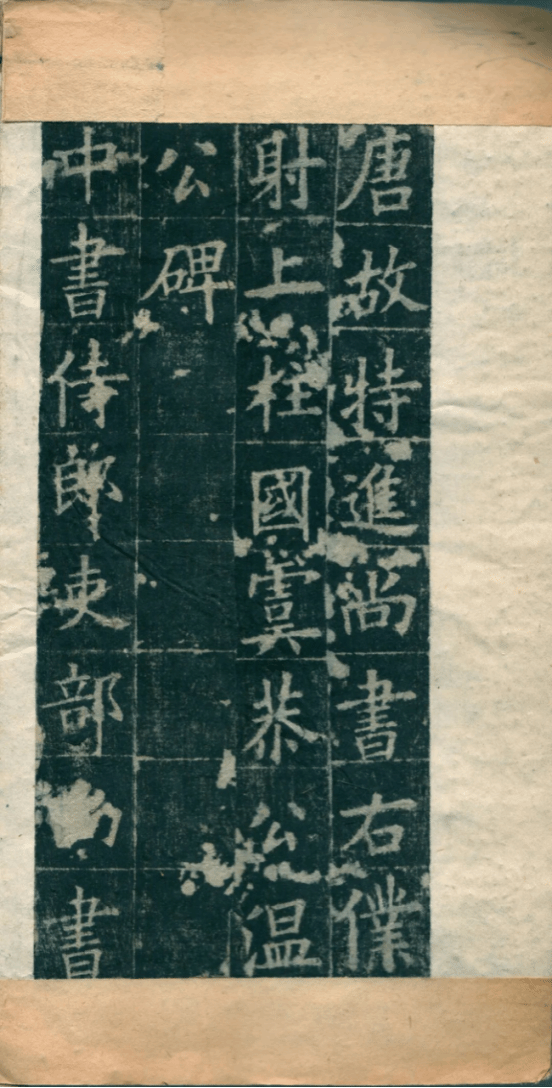 唐故特進尚書右僕
射上柱國虞恭公温
公碑
中書侍郎吏部書